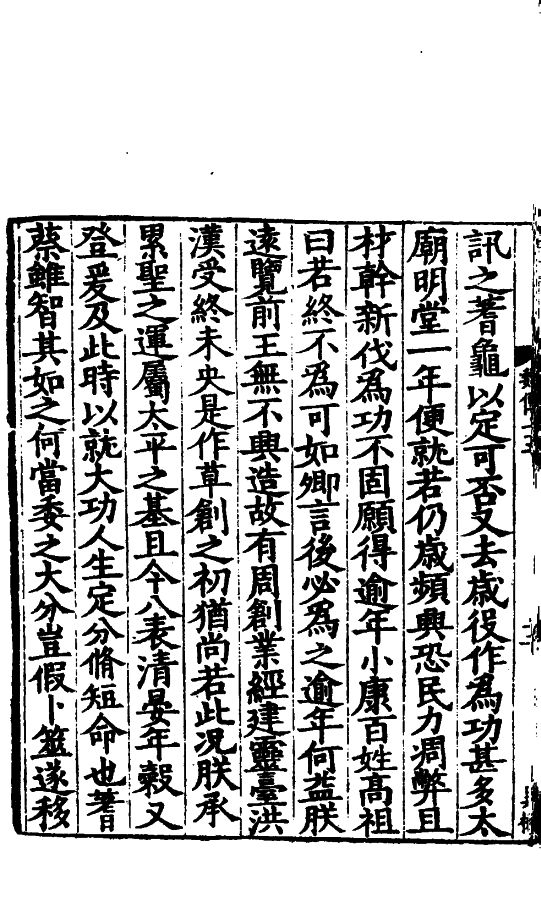 訊之蓍龜以定可否又去歲役作為功甚多太
廟明堂一年便就若仍歲頻興恐民力凋弊且
材幹新伐為功不固願得逾年小康百姓高祖
曰若終不為可如卿言後必為之逾年何益朕
遠覽前王無不興造故有周創業經建靈臺洪
漢受終未央是作草創之初猶尚若此况朕承
累聖之運屬太平之基且今八表清晏年穀又
登爰及此時以就大功人生定分脩短命也蓍
蔡雖智其如之何當委之大分豈假卜筮遂移